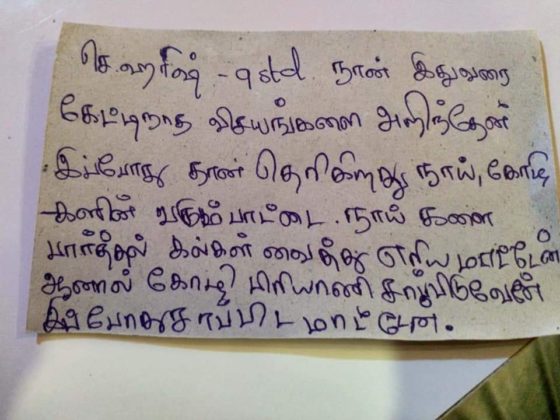 செ.ஹரிஷ் - 9 std நான் இதுவரை
கேட்டிறாத விசயங்களை அறிந்தேன்
இப்போது தான் தெரிகிறது நாய், கோழி
-களின் வருமபாட்டை. நாய் களை
பார்த்தல் கல்கள் வைத்து எரிய மாட்டேன்
ஆனால் கோழி பிரியாணி சாப்பிடுவேன்
இப் போதுசாப்பிட மாட்டேன.